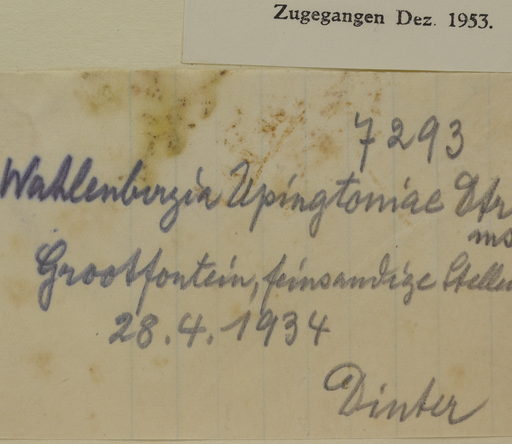 Zugegangen Dez. 1953.
7293
Wahlenbergia Upingtoniae
ms
Grootfontein, feinsandige Stellen
28.4.1934
Dinter